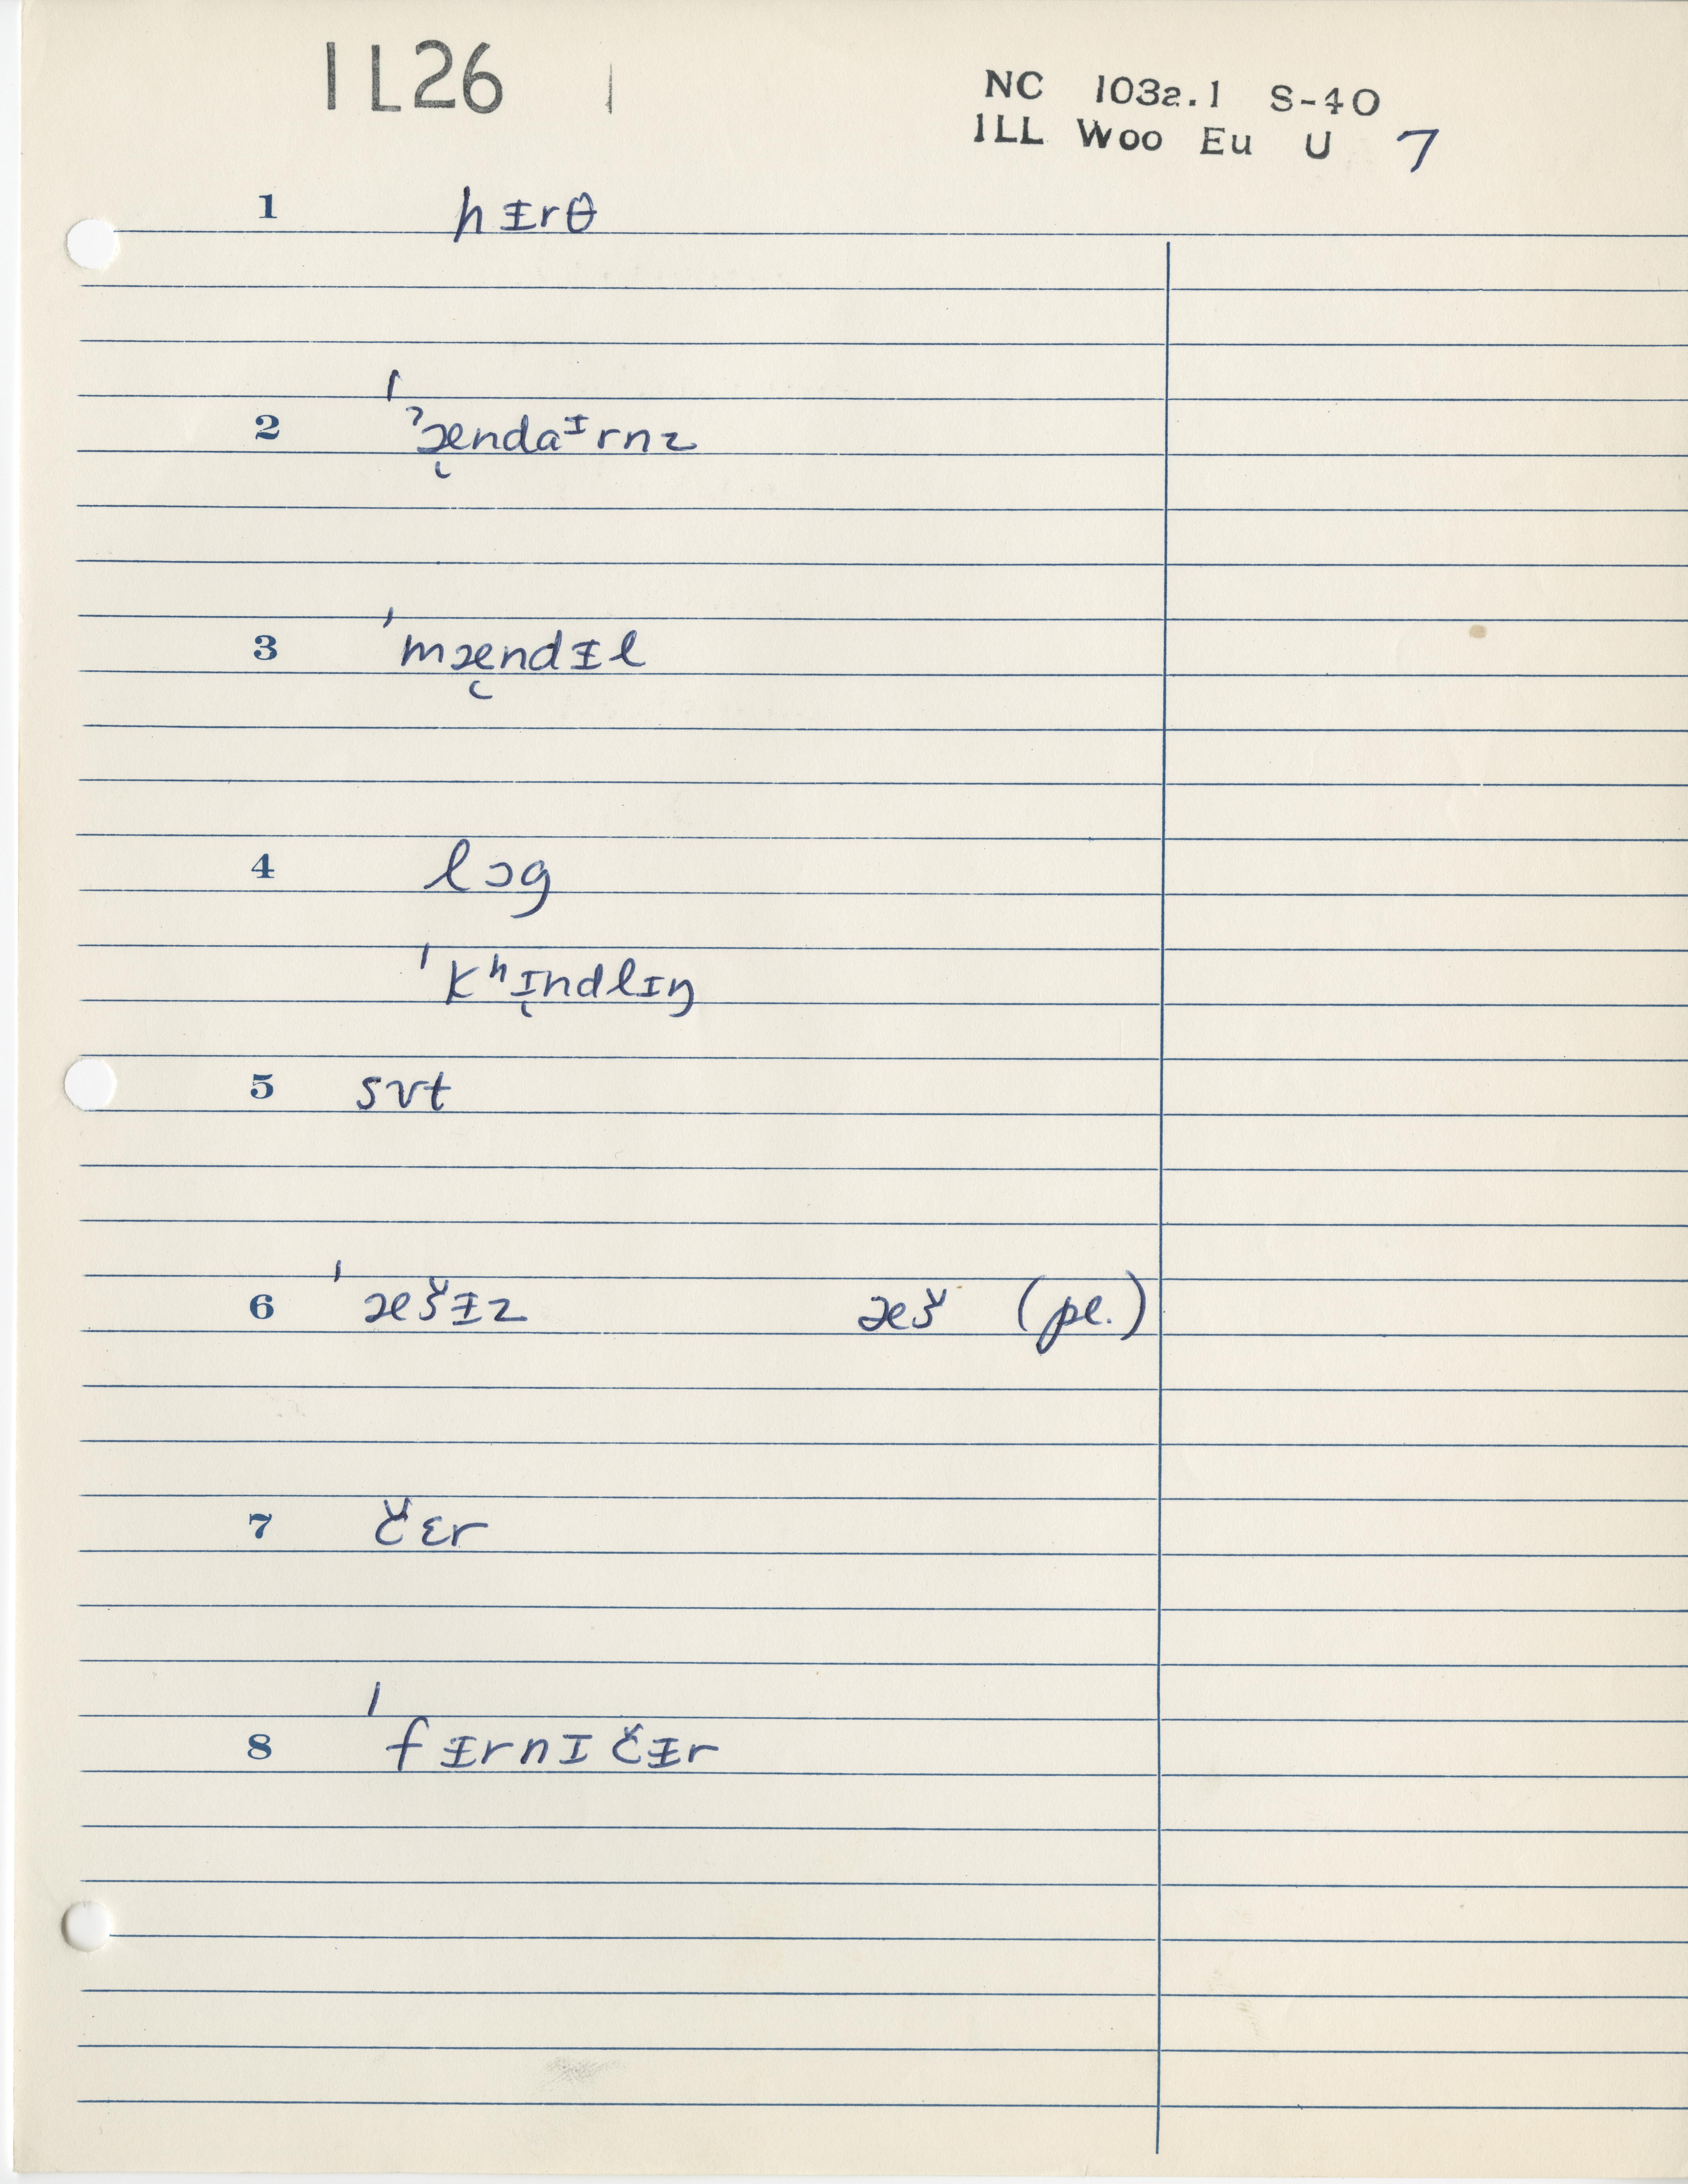 1L26 1
NC 103a.1 S-40
ILL Woo Eu U 7
1 hᵻrθ
2 ˈˀæ̨ndaᶦrnz
3 ˈmæ̨ndᵻl
4 lɔg
ˈkʰɪ̨ndlɪŋ
5 sʌt
6 ˈæšᵻz æš (pl.)
7 čɛr
8 ˈfᵻrnɪčᵻr